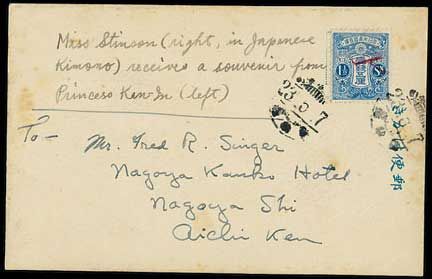 Miss Stinson (right, in Japenese
Kimono) receives a souvenir from
Princess Ken-In (left)
1½ S
23.5.7
23.5.7
To- Mr. Fred R. Singer
Nagoya Kanko Hotel
Nagoya Shi
Aichi Ken
便郵